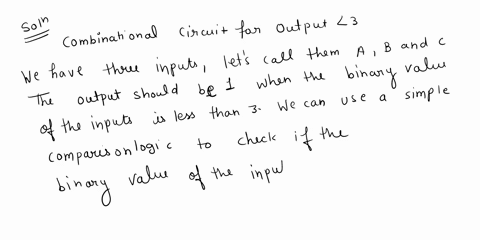 Soln
Combinational Circuit for Output <3
We have three inputs, let's call them A, B and C
The output should be 1 when the binary value
of the inputs is less than 3. We can use a simple
comparison logic to check if the
binary value of the inpu